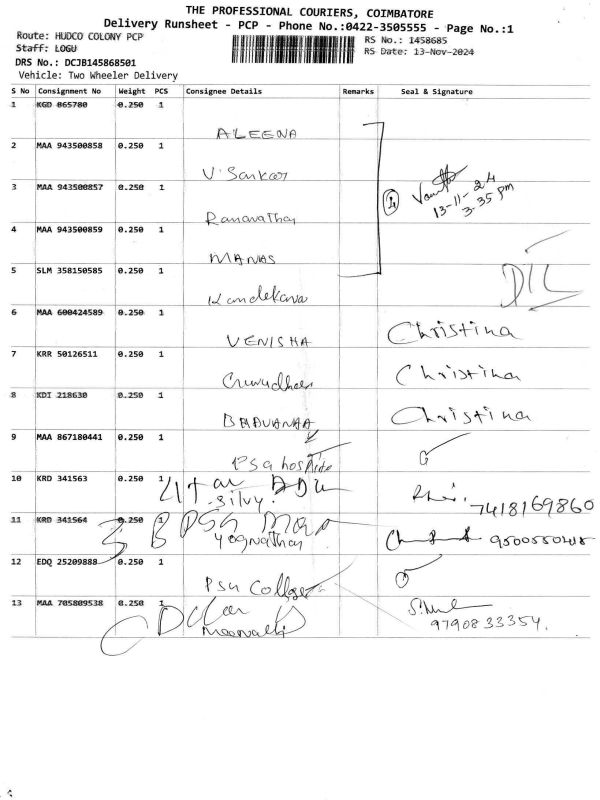 THE PROFESSIONAL COURIERS, COIMBATORE
Delivery Runsheet - PCP - Phone No.:0422-3505555 - Page No.:1
Route: HUDCO COLONY PCP
RS No.: 1458685
Staff: LOGU
RS Date: 13-Nov-2024
DRS No.: DCJB145868501
Vehicle: Two Wheeler Delivery
S No Consignment No Weight PCS Consignee Details Remarks Seal & Signature
1 KGD 865780 0.250 1
ALEENA
2 MAA 943500858 0.250 1
V. Sankar
3 MAA 943500857 0.250 1
13-11-24
3.35 pm
4 MAA 943500859 0.250 1
MANAS
5 SLM 358150585 0.250 1
6 MAA 600424589 0.250 1
VENISHA Christina
7 KRR 50126511 0.250 1
Christina
8 KDI 218630 0.250 1
BHAVANAA Christina
9 MAA 867180441 0.250 1
PSG
10 KRD 341563 0.250 1
silvy. 7418169860
11 KRD 341564 0.250 1
PSG
12 EDQ 25209888 0.250 1
PSG College
13 MAA 705809538 0.250 1
9790833354.